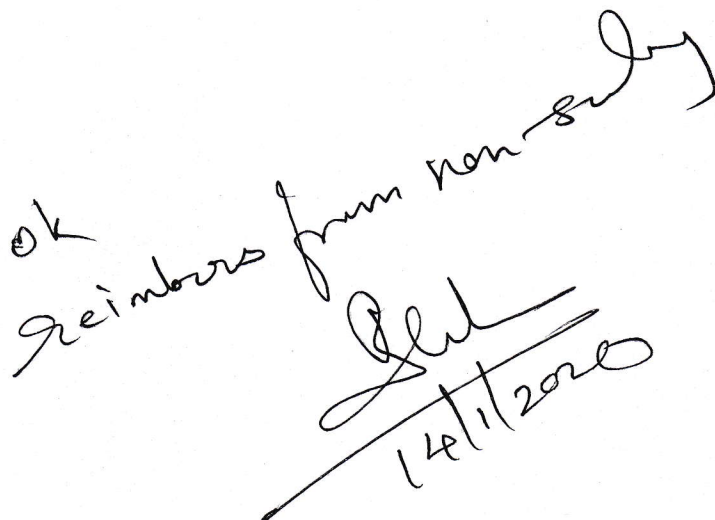 ok
reimburs from non-salary
14/1/2020